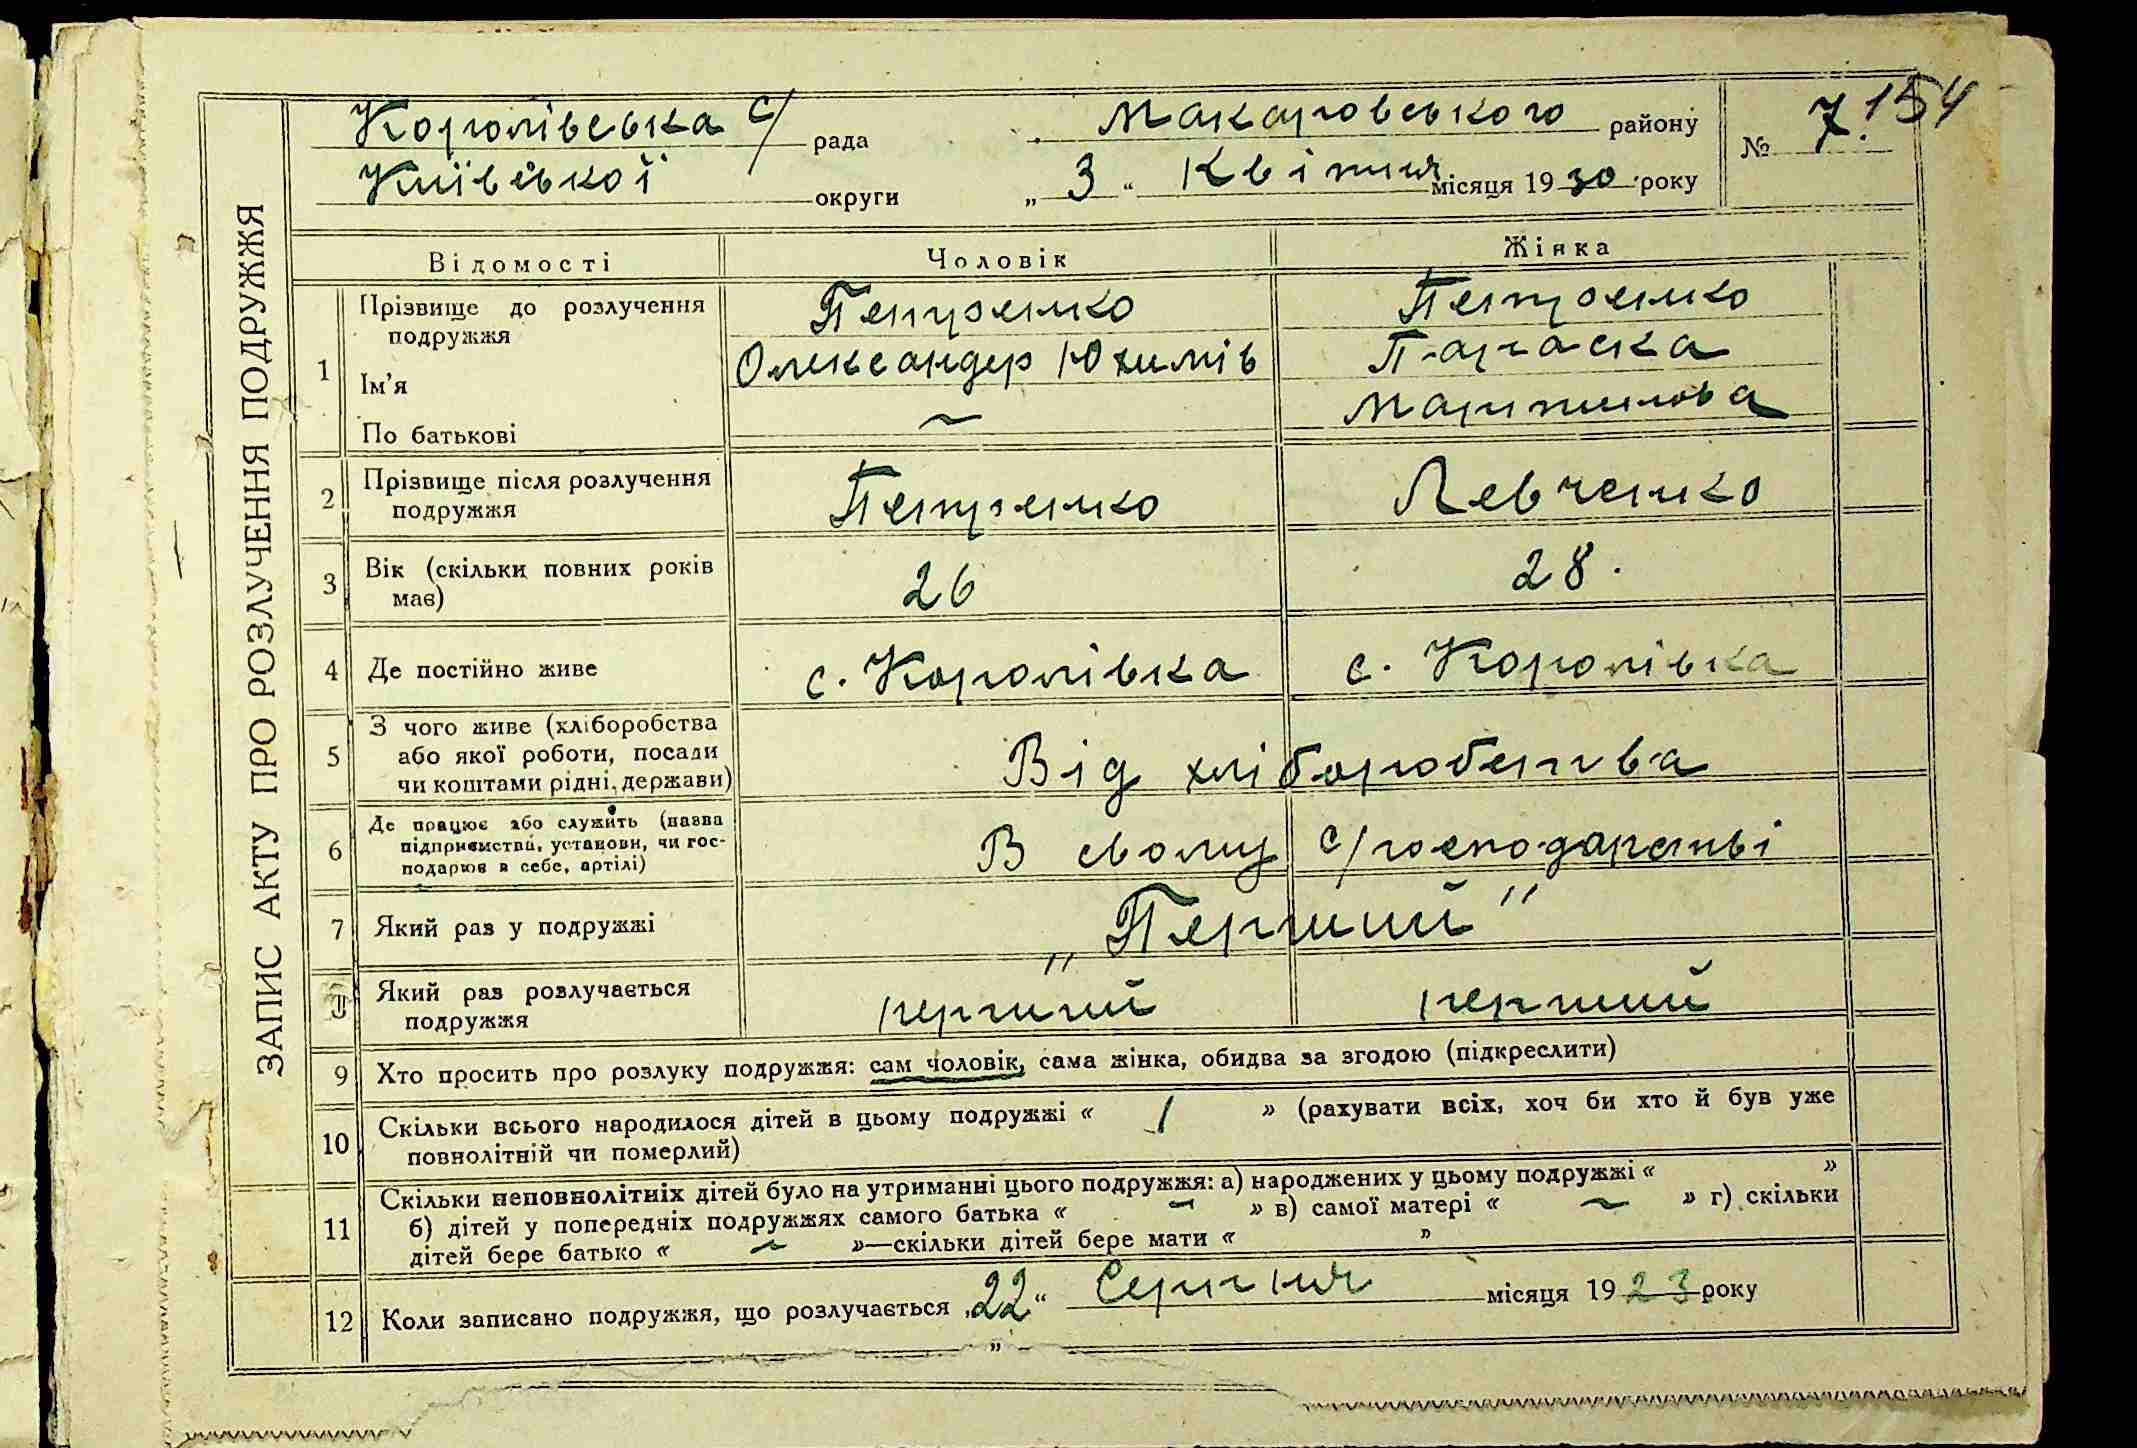 ЗАПИС АКТУ ПРО РОЗЛУЧЕННЯ ПОДРУЖЖЯ
Королівська с/ рада Макаровського району № 7. 154
Київської округи „ 3 “ Квітня місяця 1930 року
Відомості Чоловік Жінка
1 Прізвище до розлучення подружжя Петренко Петренко
Ім'я Олександер Юхимів Параска
По батькові ~ Мартинова
2 Прізвище після розлучення подружжя Петренко Левченко
3 Вік (скільки повних років має) 26 28.
4 Де постійно живе с. Королівка с. Королівка
5 З чого живе (хліборобства
або якої роботи, посади
чи коштами рідні, держави) Від хліборобства
6 Де працює або служить (назва
підприємства, установи, чи гос-
подарює в себе, артілі) В свому с/господарстві
7 Який раз у подружжі „Перший"
8 Який раз розлучається
подружжя перший перший
9 Хто просить про розлуку подружжя: сам чоловік, сама жінка, обидва за згодою (підкреслити)
10 Скільки всього народилося дітей в цьому подружжі « 1 » (рахувати всіх, хоч би хто й був уже
повнолітній чи померлий)
11 Скільки неповнолітніх дітей було на утриманні цього подружжя: а) народжених у цьому подружжі « »
б) дітей у попередніх подружжях самого батька « — » в) самої матері « ~ » г) скільки
дітей бере батько « ~ »—скільки дітей бере мати « »
12 Коли записано подружжя, що розлучається „22“ Серпня місяця 1923 року